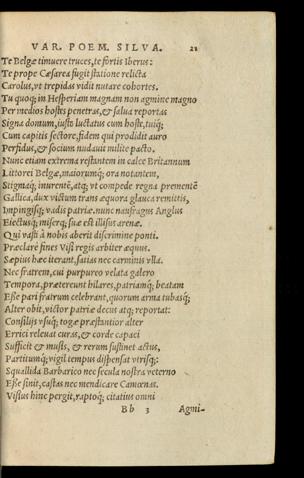 VAR. POEM. SILVA. 21
Te Belgæ timuere truces, te fortis Iberus:
Te prope Cæsarea fugit statione relicta
Carolus, vt trepidas vidit nutare cohortes.
Tu quoq; in Hesperiam magnam non agmine magno
Per medios hostes penetras, & salua reportas
Signa domum, iusto luctatus cum hoste, tuiq;
Cum capitis sectore, fidem qui prodidit auro
Perfidus, & socium nudauit milite pacto.
Nunc etiam extrema restantem in calce Britannum
Littorei Belgæ, maiorumq; ora notantem,
Stigmaq; inurentē, atq; vt compede regna prementē
Gallica, dux victum trans æquora glauca remittis,
Impingisq; vadis patriæ. nunc naufragus Anglus
Eiectusq; miserq; suæ est illisus arenæ.
Qui vasti à nobis aberit discrimine ponti.
Præclarè fines Visi regis arbiter æquus.
Sæpius hæc iterant. satias nec carminis vlla.
Nec fratrem, cui purpureo velata galero
Tempora, prætereunt hilares, patriamq; beatam
Esse pari fratrum celebrant, quorum arma tubasq;
Alter obit, victor patriæ decus atq; reportat:
Consilijs vsuq; togæ præstantior alter
Errici releuat curas, & corde capaci
Sufficit & musis, & rerum sustinet actus,
Partitumq; vigil tempus dispensat vtrisq;:
Squallida Barbarico nec secula nostra veterno
Esse sinit, castas nec mendicare Camœnas.
Visus hinc pergit, raptoq; citatius omni
Bb 3 Agmi-